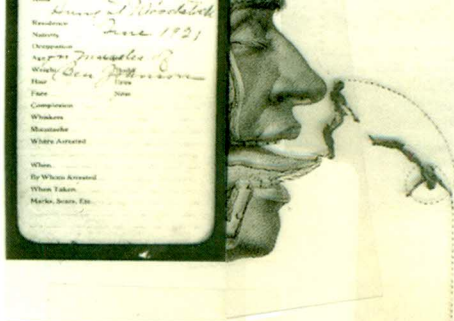 Hung at Woodstock
Residence
Nativity June 1921
Occupation
Age muscles of
Weight Ben Johnson
Hair Eyes
Face Nose
Complexion
Whiskers
Moustache
Where Arrested
When
By Whom Arrested
When Taken
Marks, Scars, Etc.